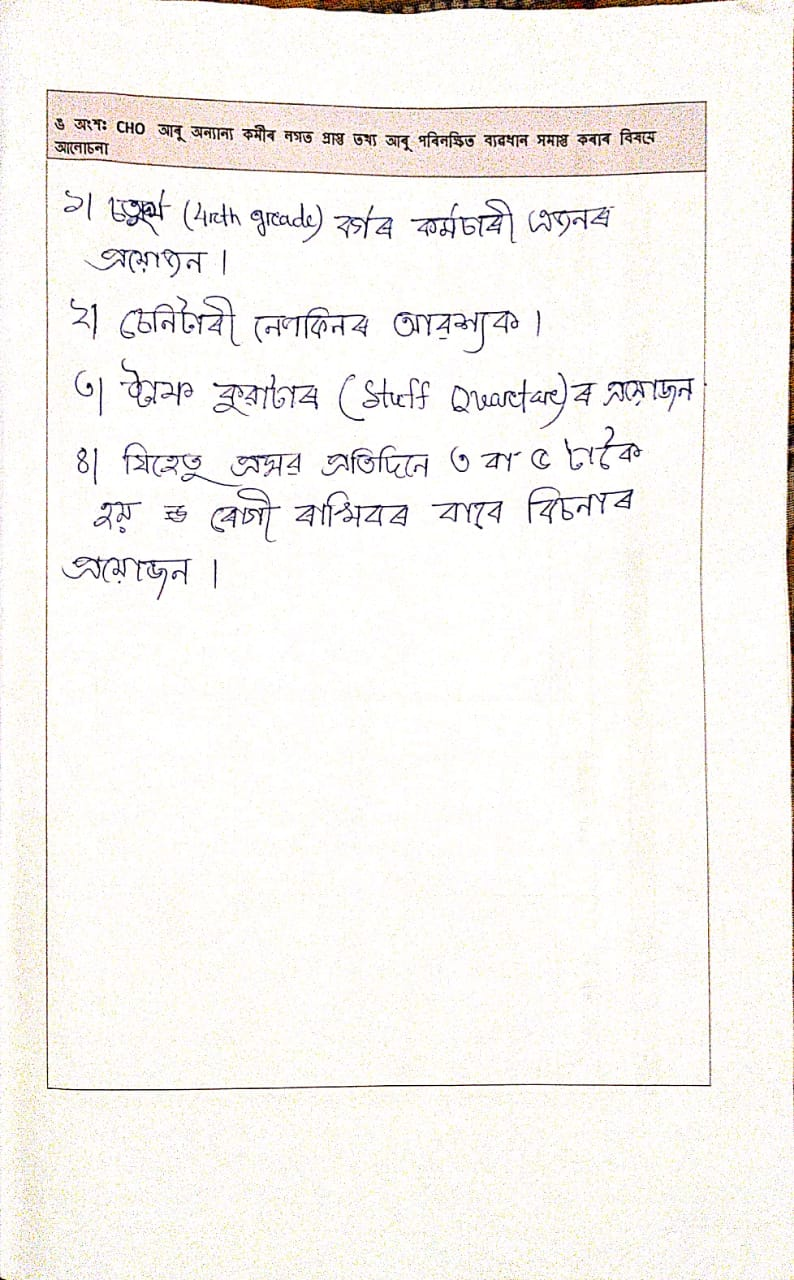 ঙ অংশঃ CHO আৰু অন্যান্য কৰ্মীৰ লগত প্ৰাপ্ত তথ্য আৰু পৰিলক্ষিত ব্যৱধান সমাপ্ত কৰাৰ বিষয়ে
আলোচনা
১| চতুৰ্থ (4rth grade) বৰ্গৰ কৰ্মচাৰী এজনৰ
প্ৰয়োজন ।
২| চেনিটাৰী নেপকিনৰ আৱশ্যক ।
৩| ষ্টাফ কুৱাটাৰ (Stuff Quarctare)ৰ প্ৰয়োজন
৪| যিহেতু প্ৰসৱ প্ৰতিদিনে ৩ বা ৫ টাকৈ
হয় ৰোগী ৰাখিবৰ বাবে বিচনাৰ
প্ৰয়োজন ।